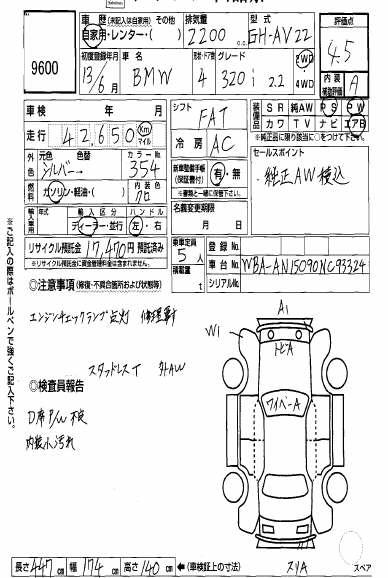 9600
車歴 (未記入は自家用) その他 排気量 型式 評価点
自家用・レンター・( ) 2200 cc GH-AV22 4.5
初度登録年月 車名 形状・ドア数 グレード 2WD・4WD 内装
13/6月 BMW 4 320i 2.2 補助評価 A
車検 年 月 シフト FAT 装備品 SR 純AW PS PW
走行 42,650 Km マイル 冷房 AC カワ TV ナビ エアB
※純正品に限り該当に○をつけて下さい
外色 元色 色替 カラーNo. シルバー 354
新車整備手帳(保証書付) 有・無
※書類と一緒に保管下さい
セールスポイント
純正AW積込
燃料 ガソリン・軽油・( ) 内装色 クロ
名義変更期限 月 日
輸入車 輸入区分 ハンドル
ディーラー・並行 左・右
リサイクル預託金 17,470円 預託済み
※リサイクル預託金に資金管理料金は含まれません。
乗車定員 5人 登録No.
積載量 t 車台No. WBA-AN15090NC93324
シリアルNo.
◎注意事項 (修復・不具合箇所および状態等)
エンジンチェックランプ点灯 修理車
スタッドレスT 外AW
◎検査員報告
D席P/W不良
内装小汚れ
A1
W1
トビA
ワイパーA
スリA
スペア
長さ 447cm 幅 174cm 高さ 140cm ←(車検証上の寸法)
※ご記入の際はボールペンで強くご記入下さい。